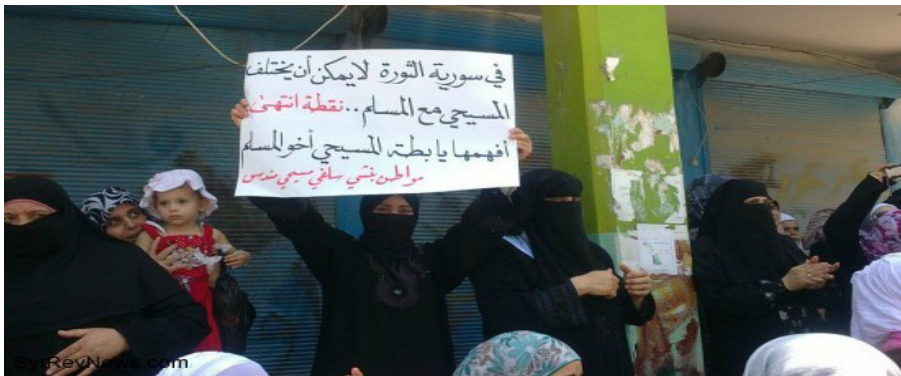 في سورية الثورة لا يمكن أن يختلف
المسيحي مع المسلم.. نقطة انتهى
أفهمها يا بطة المسيحي أخو المسلم
مواطن بنشي سلفي مسيحي مندس
SyrRevNews.com